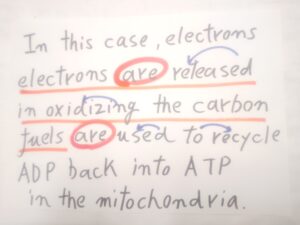 In this case, electrons
electrons are released
in oxidizing the carbon
fuels are used to recycle
ADP back into ATP
in the mitochondria.